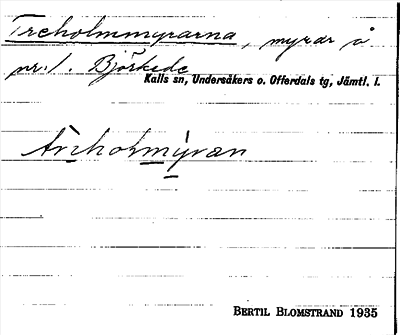 Treholmmyrarna, myrar å
nr. 1. Björkede
Kalls sn, Undersåkers o. Offerdals tg, Jämtl. l.
BERTIL BLOMSTRAND 1935